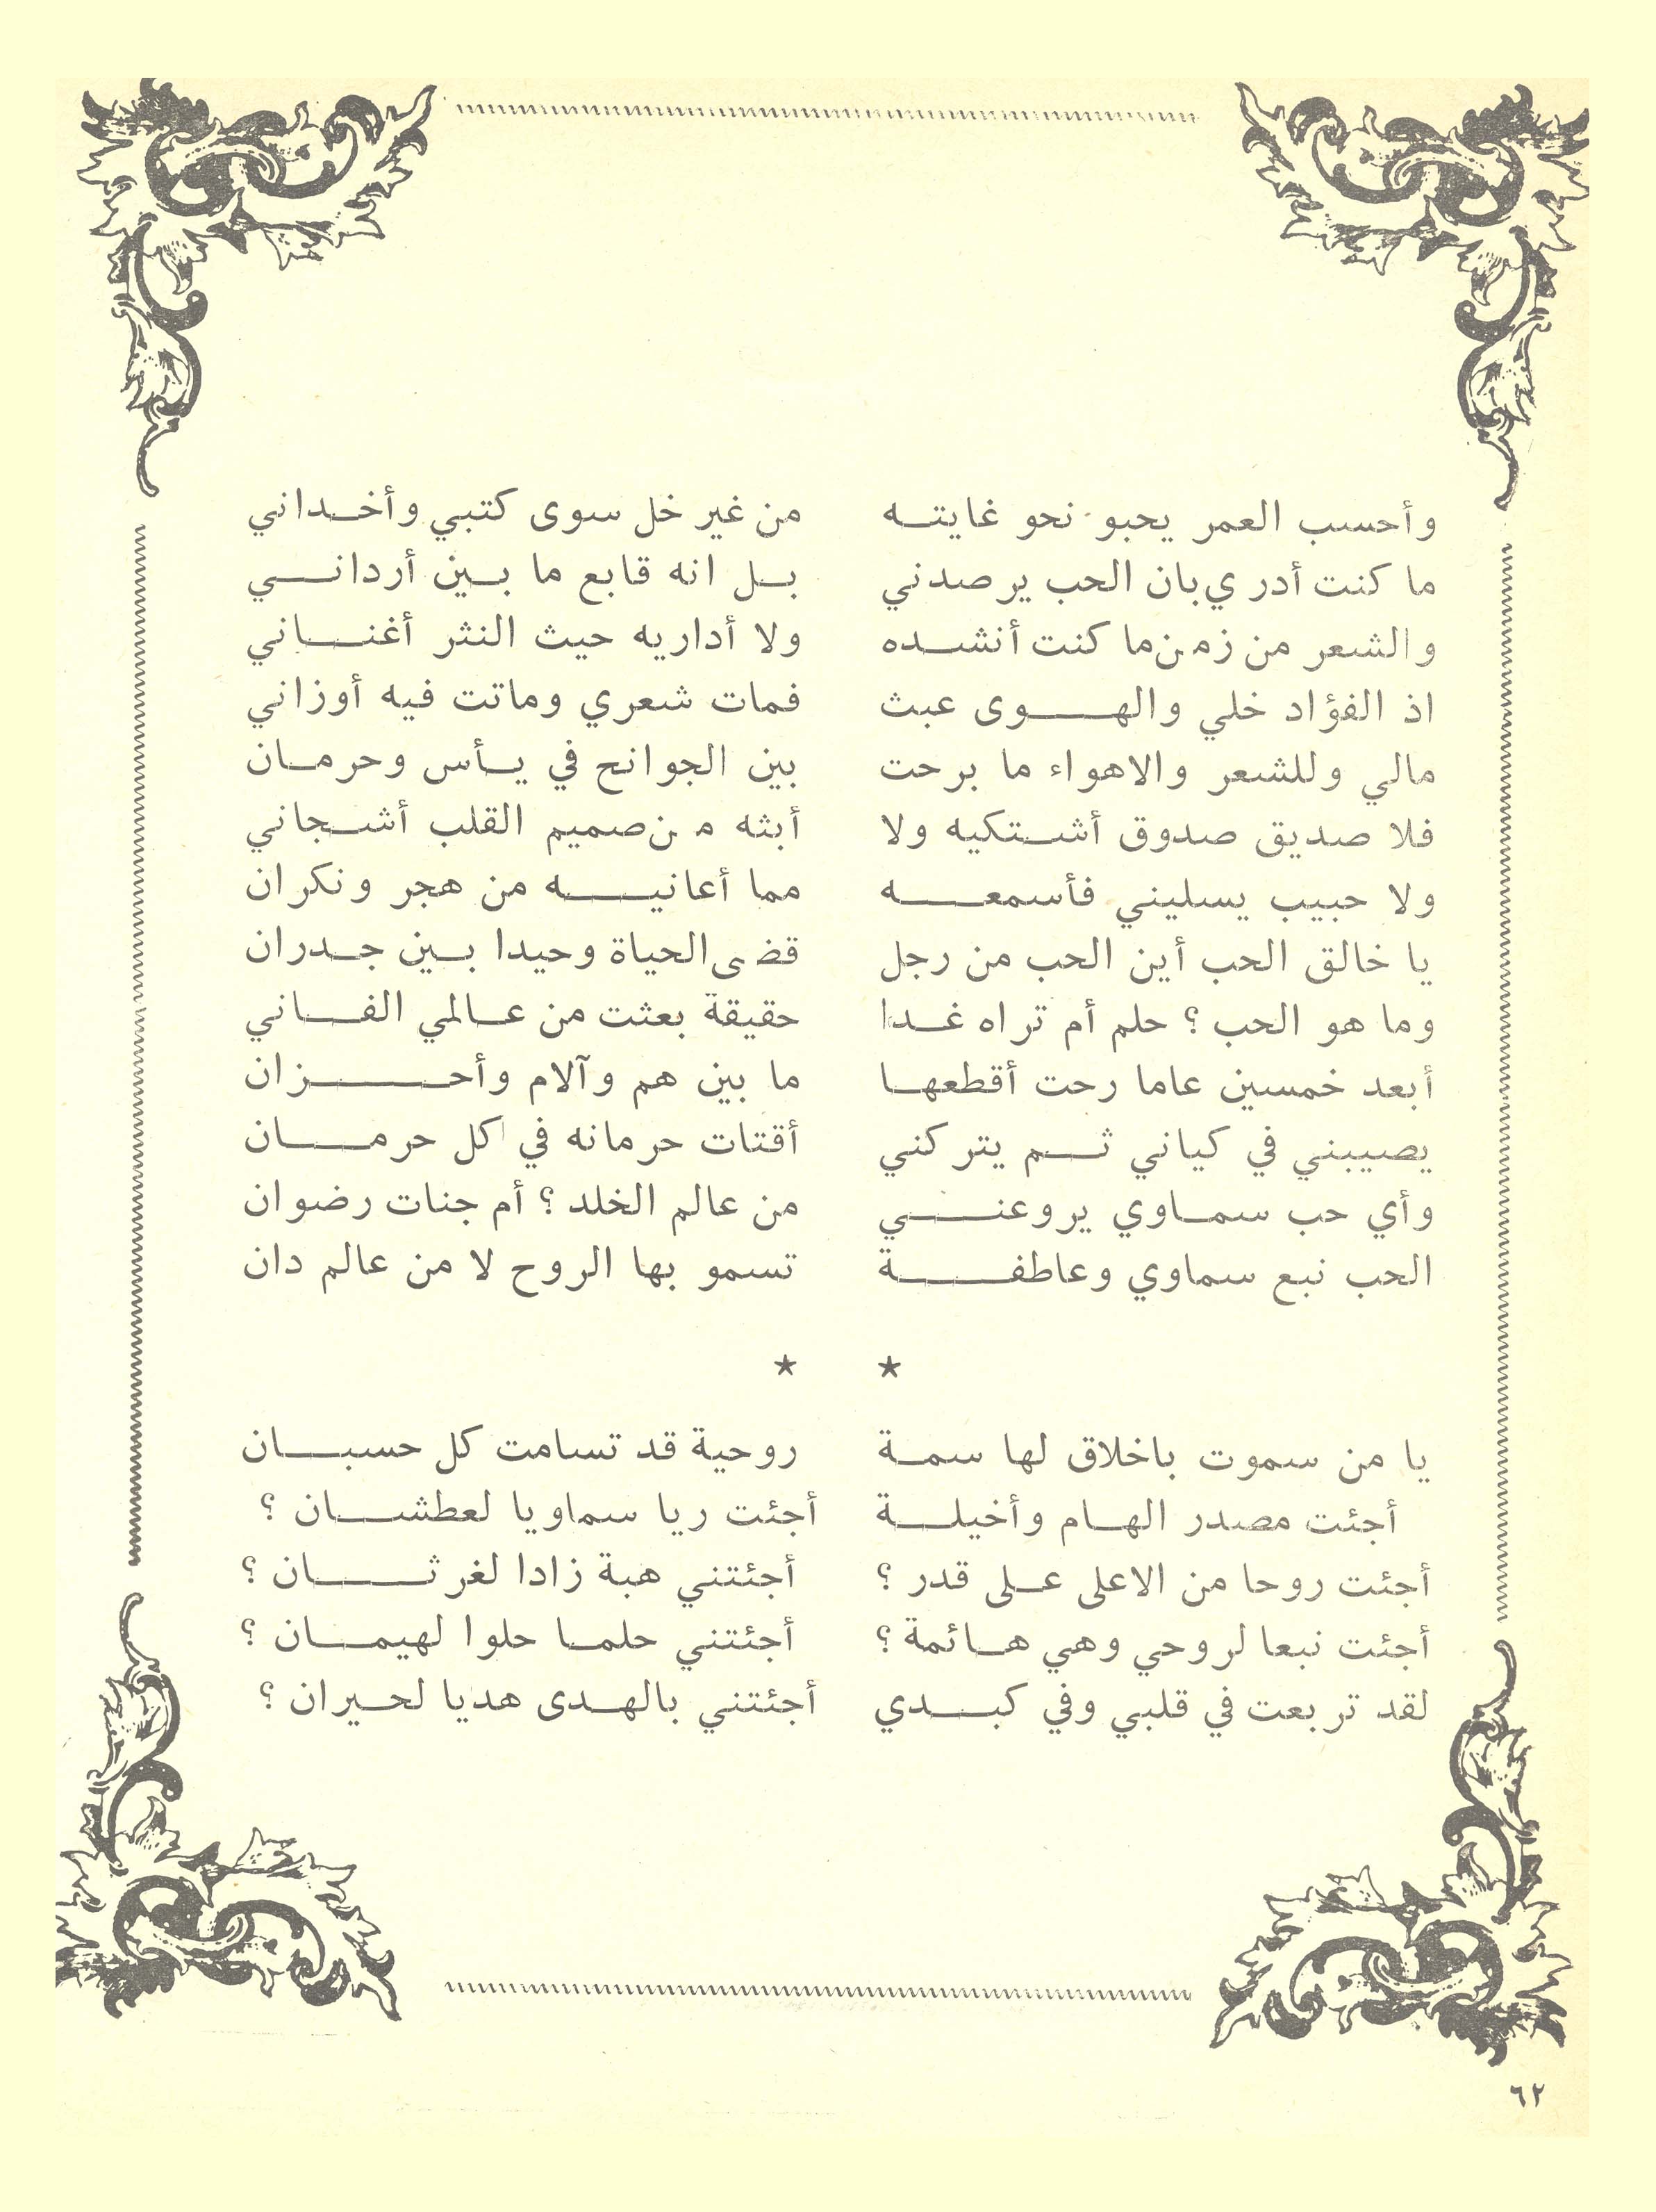 وأحسب العمر يحبو نحو غايته من غير خل سوى كتبي وأخداني
ما كنت أدري بان الحب يرصدني بل انه قابع ما بين أرداني
والشعر من زمن ما كنت أنشده ولا أداريه حيث النثر أغناني
اذ الفؤاد خلي والهوى عبث فمات شعري وماتت فيه أوزاني
مالي وللشعر والاهواء ما برحت بين الجوانح في يأس وحرمان
فلا صديق صدوق أشتكيه ولا أبثه من صميم القلب أشجاني
ولا حبيب يسليني فأسمعه مما أعانيه من هجر ونكران
يا خالق الحب أين الحب من رجل قضى الحياة وحيدا بين جدران
وما هو الحب ؟ حلم أم تراه غدا حقيقة بعثت من عالمي الفاني
أبعد خمسين عاما رحت أقطعها ما بين هم وآلام وأحزان
يصيبني في كياني ثم يتركني أقتات حرمانه في كل حرمان
وأي حب سماوي يروعني من عالم الخلد ؟ أم جنات رضوان
الحب نبع سماوي وعاطفة تسمو بها الروح لا من عالم دان
★ ★
يا من سموت باخلاق لها سمة روحية قد تسامت كل حسبان
أجئت مصدر الهام وأخيلة أجئت ريا سماويا لعطشان ؟
أجئت روحا من الاعلى على قدر ؟ أجئتني هبة زادا لغرثان ؟
أجئت نبعا لروحي وهي هائمة ؟ أجئتني حلما حلوا لهيمان ؟
لقد تربعت في قلبي وفي كبدي أجئتني بالهدى هديا لحيران ؟
٦٢